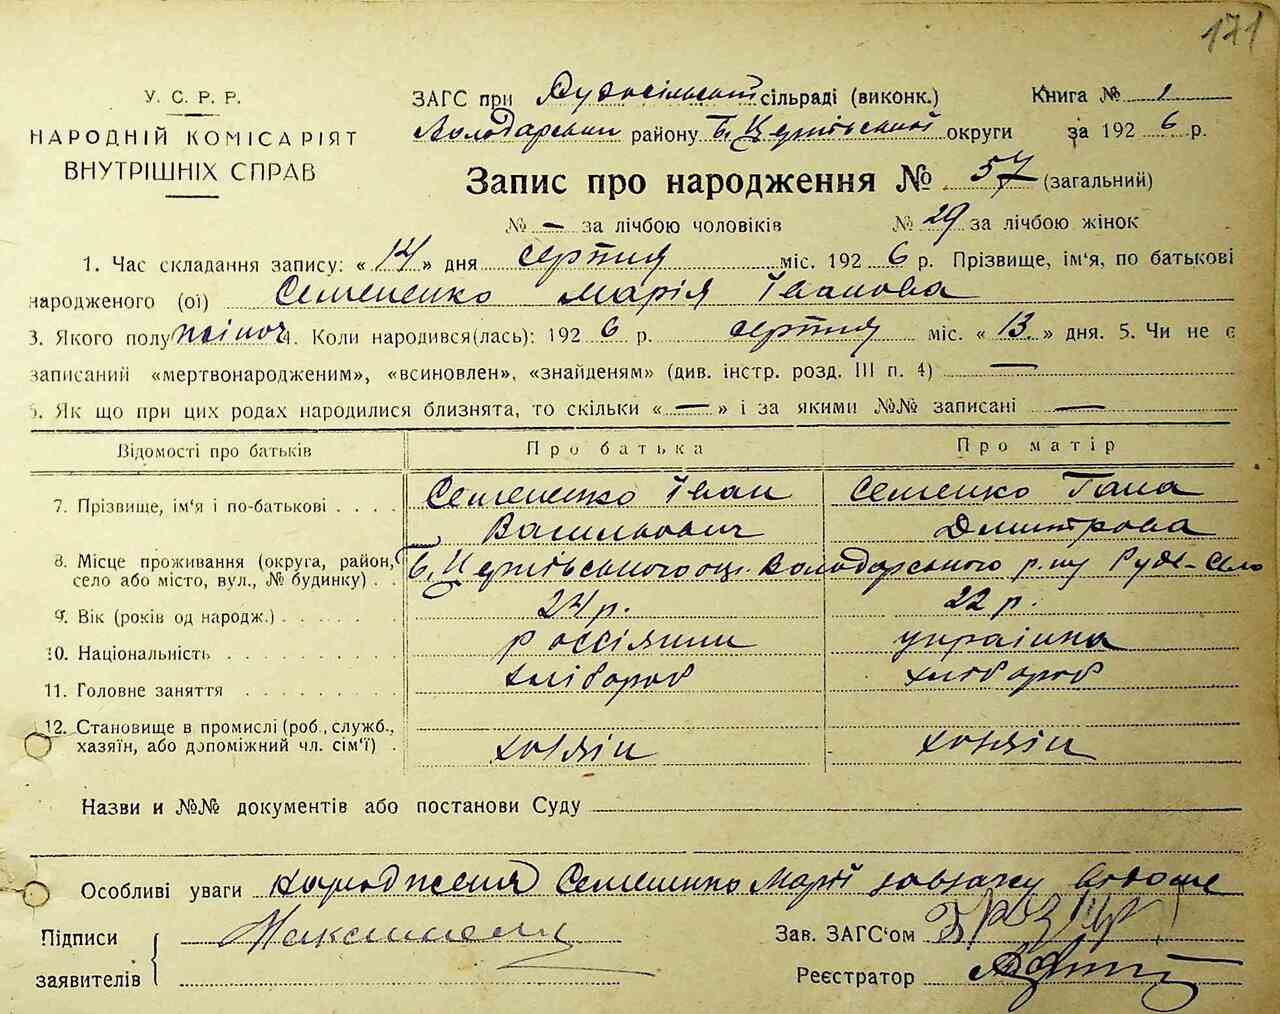 171
У. С. Р. Р.
НАРОДНІЙ КОМІСАРІЯТ
ВНУТРІШНІХ СПРАВ
ЗАГС при Рудосільській сільраді (виконк.) Книга № 1
Володарський району Б. Церківської округи за 1926 р.
Запис про народження № 57 (загальний)
№ — за лічбою чоловіків № 29 за лічбою жінок
1. Час складання запису: «14» дня серпня міс. 1926 р. Прізвище, ім'я, по батькові
народженого (ої) Семененко Марія Іванова
3. Якого полу жіноч 4. Коли народився(лась): 1926 р. серпня міс. «13» дня. 5. Чи не є
записаний «мертвонародженим», «всиновлен», «знайденям» (див. інстр. розд. III п. 4) —
6. Як що при цих родах народилися близнята, то скільки « — » і за якими №№ записані —
Відомості про батьків Про батька Про матір
7. Прізвище, ім'я і по-батькові Семененко Іван Семенко Гана
Васильович Дмитрова
8. Місце проживання (округа, район,
село або місто, вул., № будинку) Б. Церківського окр. Володарського р-ну Руде-Село
9. Вік (років од народж.) 24 р. 22 р.
10. Національність россіянин українка
11. Головне заняття хлібороб хлібороб
12. Становище в промислі (роб., служб.,
хазяїн, або допоміжний чл. сім'ї) хозяін хозяін
Назви и №№ документів або постанови Суду
Особливі уваги народження Семененко Марії
Підписи
заявителів
Зав. ЗАГС'ом
Реєстратор